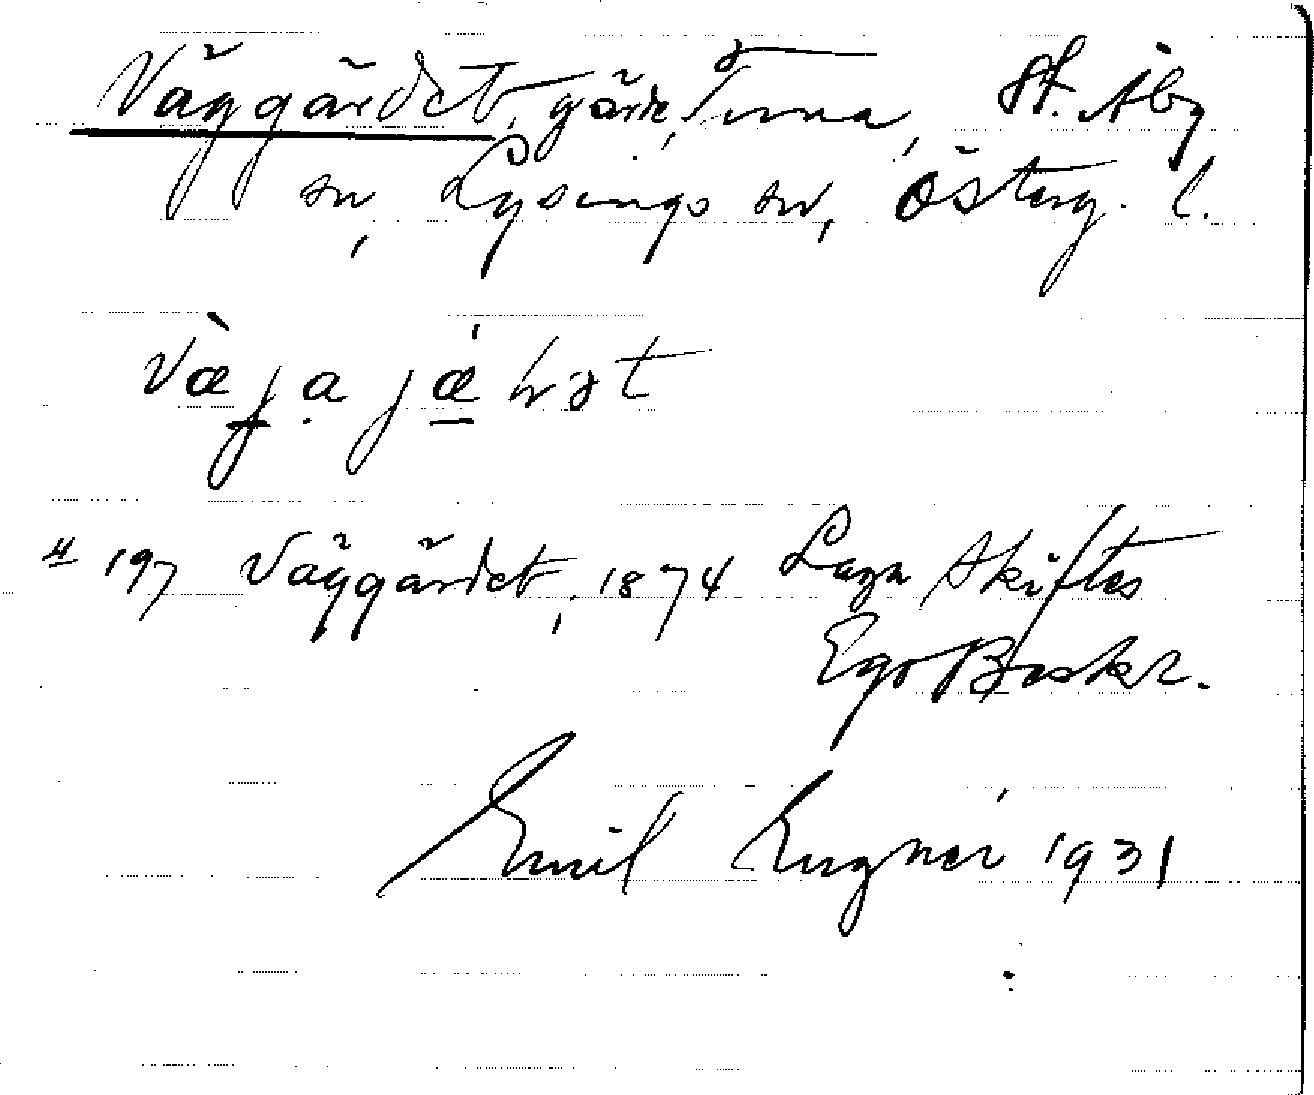 Väggärdet, gärde, Tuna, St. Åby
sn, Lysings hd, Österg. l.
væjajæ
№ 197 Väggärdet, 1874 Laga Skiftes
Ego Beskr.
Emil Lugner 1931